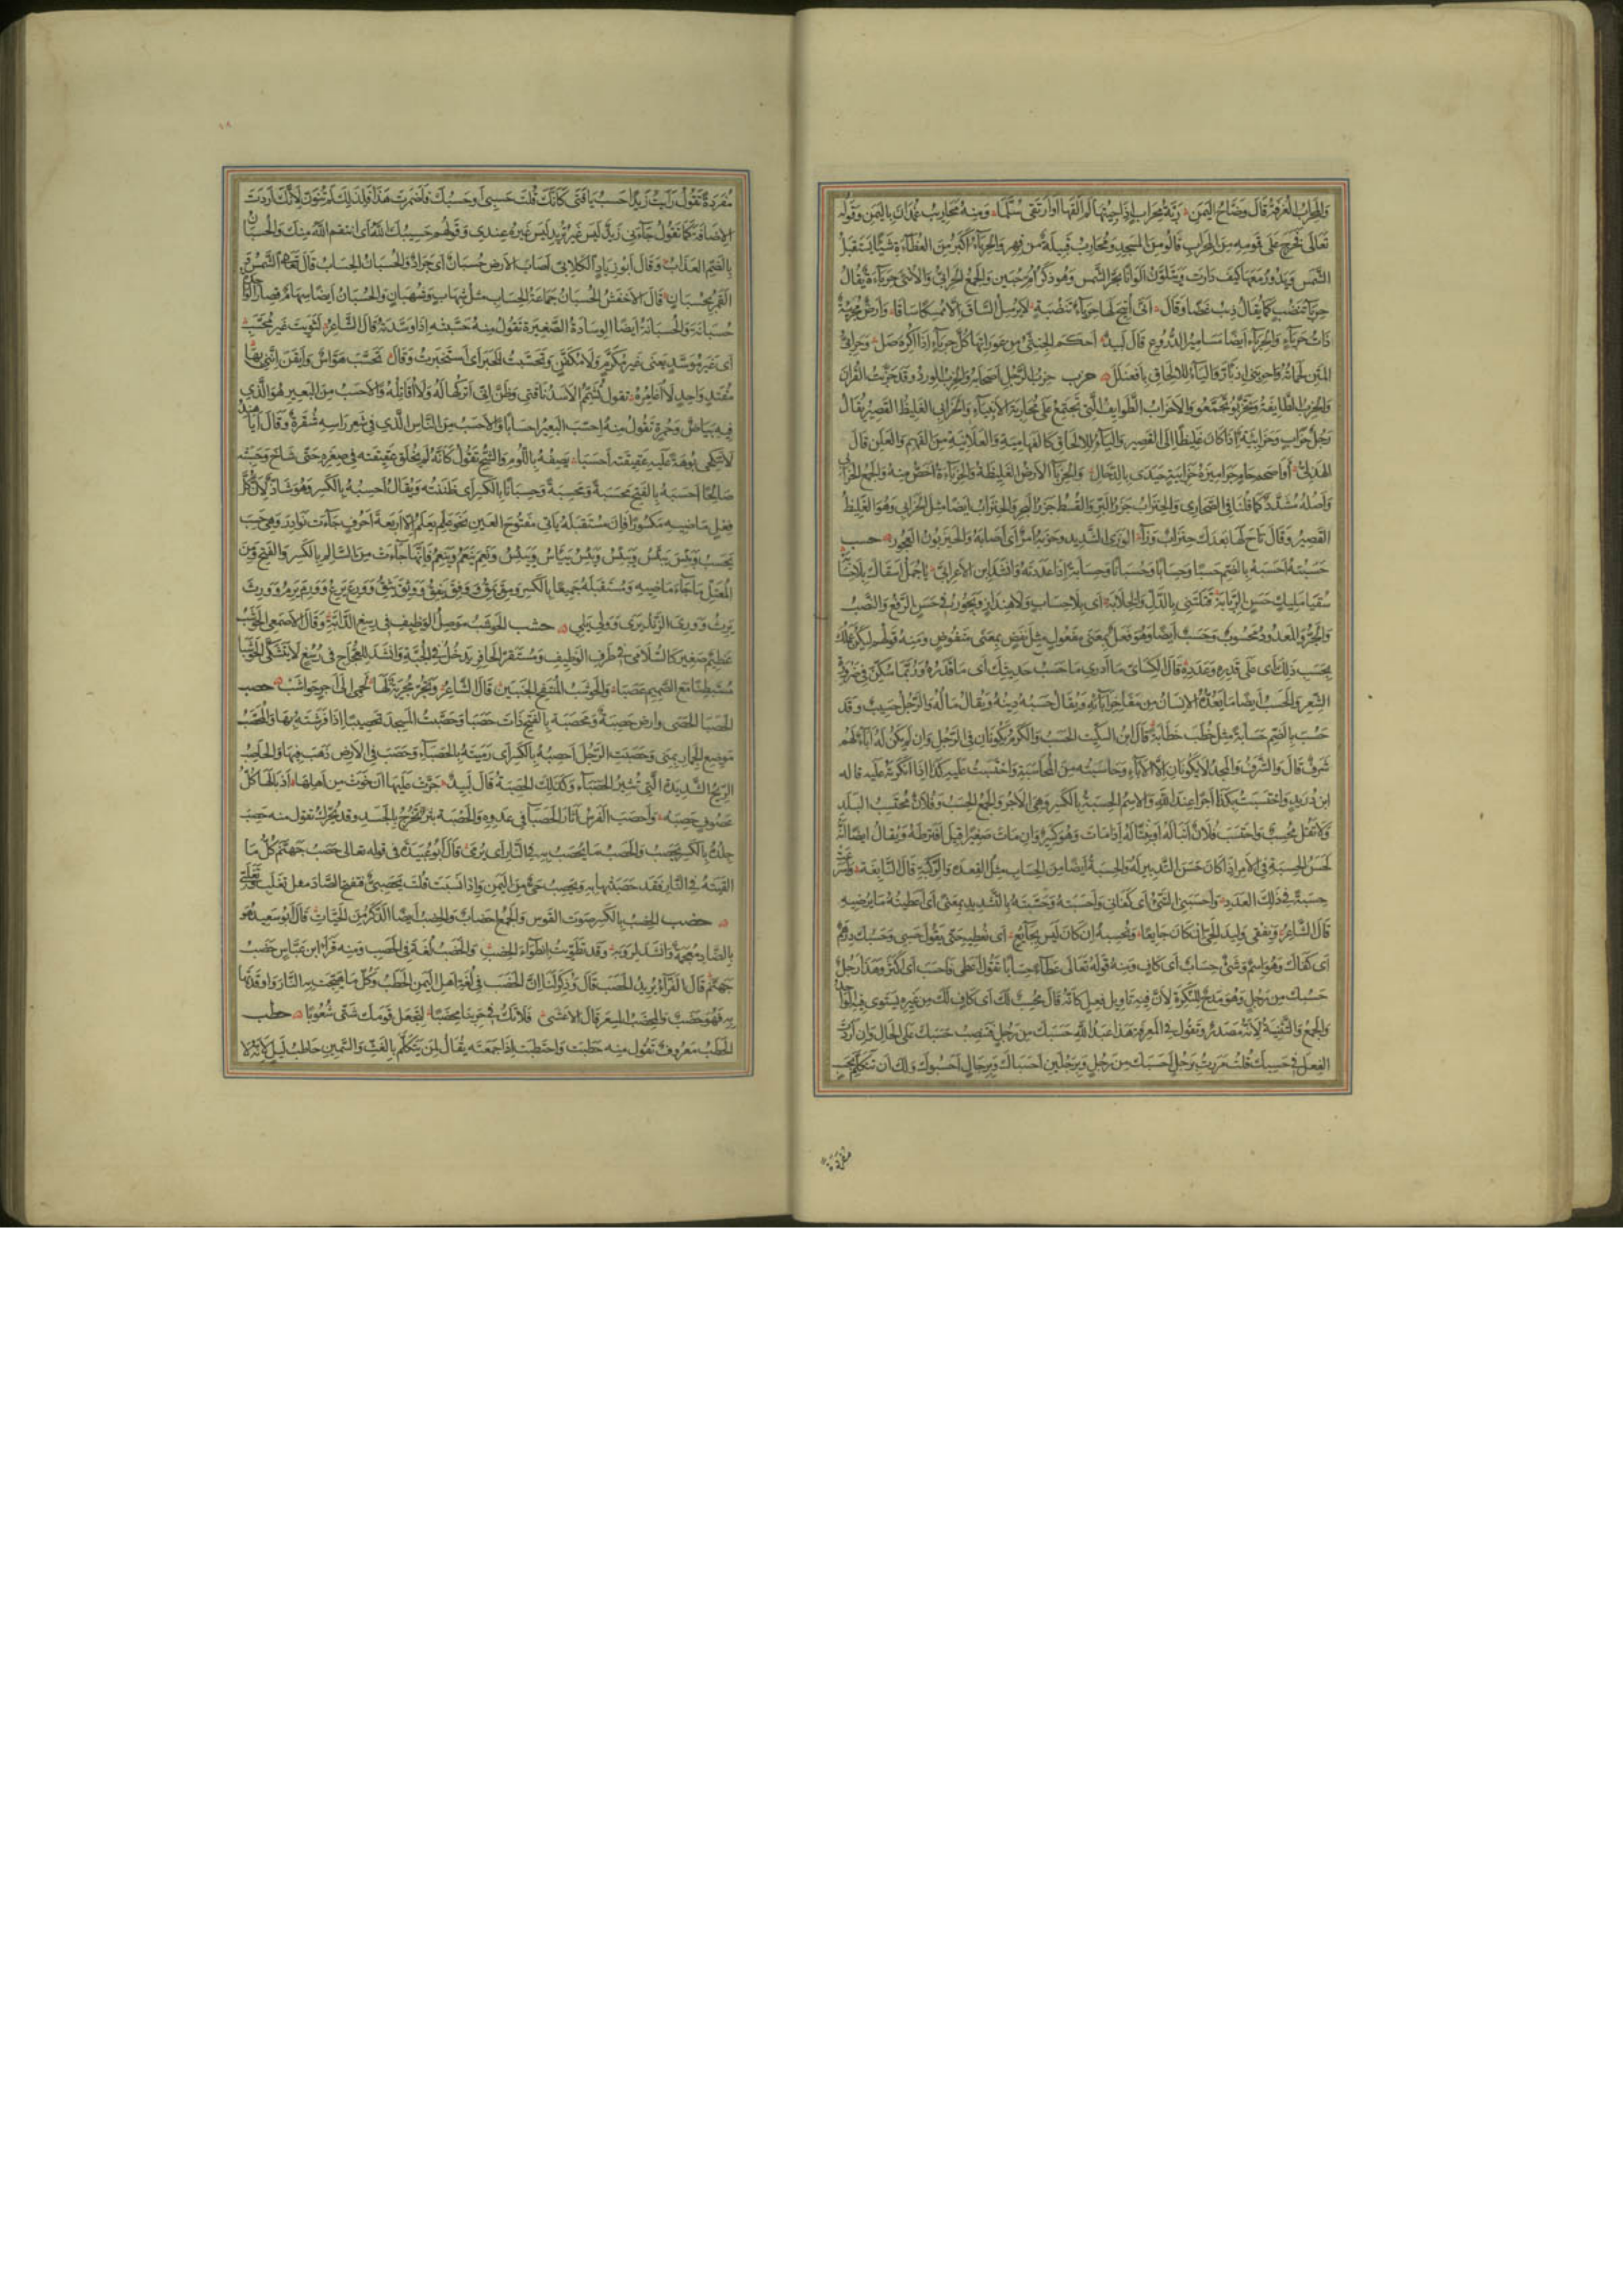 والمحراب الغرفة قال وضاح اليمن ربة محراب إذا جئتها لم ألقها أو أرتقي سلما ومنه محاريب غمدان باليمن وقوله
تعالى فخرج على قومه من المحراب قالوا من المسجد ومحارب قبيلة من فهر والحرباء أكبر من العظاءة شيئا يستقبل
الشمس ويدور معها كيف دارت ويتلون ألوانا بحر الشمس وهو ذكر أم حبين والجمع الحرابي والأنثى حرباءة يقال
حرباء تنضب كما يقال ذئب غضا وقال أنى أتيح لها حرباء تنضبة لا يرسل الساق إلا ممسكا ساقا وأرض محربئة
ذات حرباء والحرباء أيضا مسامير الدروع قال لبيد أحكم الجنثي من عوراتها كل حرباء إذا أكره صل وحرابي
المتن لحماته واحربنى ازبأر والياء للإلحاق بافعنلل حزب حزب الرجل أصحابه والحزب الورد وقد حزبت القرآن
والحزب الطائفة وتحزبوا تجمعوا والأحزاب الطوايف التي تجتمع على محاربة الأنبياء والحزابي الغليظ القصير يقال
رجل حزاب وحزابية إذا كان غليظا إلى القصر والياء للإلحاق كالفهامية والعلانية من الفهم والعلن قال
الهذلي أو اصحم حام جراميزه حزابية حيدى بالدحال والحزباء الأرض الغليظة والحزباءة أخص منه والجمع الحزابي
وأصله مشدد كما قلنا في الصحارى والحنزاب جزر البر والقسط جزر البحر والحنزاب أيضا مثل الحزابي وهو الغليظ
القصير وقال تاح لها بعدك حنزاب وزأ الوزى الشديد وحزبه أمر أي أصابه والحيزبون العجوز حسب
حسبته أحسبه بالضم حسبا وحسابا وحسبانا وحسابة إذا عددته وأنشد ابن الأعرابي يا جمل أسقاك بلا حسابه
سقيا مليك حسن الربابه قتلتني بالدل والخلابه أي بلا حساب ولا هنداز ويجوز في حسن الرفع والنصب
والجر والمعدود محسوب وحسب أيضا وهو فعل بمعنى مفعول مثل نفض بمعنى منفوض ومنه قولهم ليكن عملك
بحسب ذلك أي على قدره وعدده قال الكسائي ما أدري ما حسب حديثك أي ما قدره وربما سكن في ضرورة
الشعر والحسب أيضا ما يعده الإنسان من مفاخر آبائه ويقال حسبه دينه ويقال ماله والرجل حسيب وقد
حسب بالضم حسابة مثل خطب خطابة قال ابن السكيت الحسب والكرم يكونان في الرجل وإن لم يكن له آباء لهم
شرف قال والشرف والمجد لا يكونان إلا بالآباء وحاسبته من المحاسبة واحتسبت عليه كذا إذا أنكرته عليه قاله
ابن دريد واحتسبت بكذا أجرا عند الله والاسم الحسبة بالكسر وهي الأجر والجمع الحسب وفلان محتسب البلد
ولا تقل محسب واحتسب فلان ابنا له أو بنتا له إذا مات وهو كبير وإن مات صغيرا قيل افترطه ويقال أيضا إنه
لحسن الحسبة في الأمر إذا كان حسن التدبير له والحسبة أيضا من الحساب مثل القعدة والركبة قال النابغة وأسرعت
حسبة في ذلك العدد وأحسبني الشيء أي كفاني وأحسبته وحسبته بالتشديد بمعنى أي أعطيته ما يرضيه
قال الشاعر ونقفي وليد الحي إن كان جايعا ونحسبه إن كان ليس بجائع أي نعطيه حتى يقول حسبي وحسبك درهم
أي كفاك وهو اسم وشيء حساب أي كاف ومنه قوله تعالى عطاء حسابا تقول أعطى فأحسب أي أكثر وهذا رجل
حسبك من رجل وهو مدح للنكرة لأن فيه تأويل فعل كأنه قال محسب لك أي كاف لك من غيره يستوي فيه الواحد
والجمع والتثنية لأنه مصدر وتقول في المعرفة هذا عبد الله حسبك من رجل فتنصب حسبك على الحال وإن أردت
الفعل في حسبك قلت مررت برجل أحسبك من رجل وبرجلين أحسباك وبرجال أحسبوك ولك أن تتكلم بحسب
مفردة
مفردة تقول رأيت زيدا حسب يا فتى كأنك قلت حسبي أو حسبك فأضمرت هذا فلذلك لم تنون لأنك أردت
الإضافة كما تقول جاءني زيد ليس غير تريد ليس غيره عندي وقولهم حسيبك الله أي انتقم الله منك والحسبان
بالضم العذاب وقال أبو زياد الكلابي أصاب الأرض حسبان أي جراد والحسبان الحساب قال تعالى الشمس و
القمر بحسبان قال الأخفش الحسبان جماعة الحساب مثل شهاب وشهبان والحسبان أيضا سهام قصار الواحد
حسبانة والحسبانة أيضا الوسادة الصغيرة تقول منه حسبته إذا وسدته قال الشاعر لثويت غير محسب
أي غير موسد يعني غير مكرم ولا مكفن وتحسبت الخبر أي استخبرت وقال تحسب هواس وأيقن أنني بها
مفتد واحد لا أغامره تقول تشمم الأسد ناقتي وظن أني أتركها له ولا أقاتله والأحسب من البعير هو الذي
فيه بياض وحمرة تقول منه احسب البعير احسابا والأحسب من الناس الذي في شعر رأسه شقرة وقال أيا هند
لا تنكحي بوهة عليه عقيقته أحسبا يصفه باللوم والشح تقول كأنه لم تحلق عقيقته في صغره حتى شاخ وحسبته
صالحا أحسبه بالفتح محسبة ومحسبة وحسبانا بالكسر أي ظننته ويقال أحسبه بالكسر وهو شاذ لأن كل
فعل ماضيه مكسورا فإن مستقبله يأتي مفتوح العين نحو علم يعلم إلا أربعة أحرف جاءت نوادر وهي حسب
يحسب ويبس ييبس وبئس يبئس ونعم ينعم فإنها جاءت من السالم بالكسر والفتح ومن
المعتل ما جاء ماضيه ومستقبله جميعا بالكسر ومق يمق وفق يفق ووثق يثق وورع يرع وورم يرم وورث
يرث ووري الزند يري وولي يلي حشب الحوشب موصل الوظيف في رسغ الدابة وقال الأصمعي الحوشب
عظيم صغير كالسلامى في طرف الوظيف ومستقر الحافر يدخل في الجبة وأنشد للعجاج في رسغ لا يتشكى الحوشبا
مستبطنا مع الصميم عصبا والحوشب المنتفخ الجنبين قال الشاعر وتجر مجرية لها لحمي إلى أجر حواشب حصب
الحصباء الحصى وأرض حصبة ومحصبة بالفتح ذات حصباء وحصبت المسجد تحصيبا إذا فرشته بها والمحصب
موضع الجمار بمنى وحصبت الرجل أحصبه بالكسر أي رميته بالحصباء وحصب في الأرض ذهب فيها والحاصب
الريح الشديدة التي تثير الحصباء وكذلك الحصبة قال لبيد جرت عليها أن خوت من أهلها أذيالها كل
عصوف حصبه وأحصب الفرس أثار الحصباء في عدوه والحصبة بثر تخرج بالجسد وقد تحرك تقول منه حصب
جلده بالكسر يحصب والحصب ما يحصب به في النار أي يرمى قال أبو عبيدة في قوله تعالى حصب جهنم كل ما
ألقيته في النار فقد حصبتها به ويحصب حي من اليمن وإذا نسبت قلت يحصبي ففتح الصاد مثل تغلب وتغلبي
حضب الحضب بالكسر صوت القوس والجمع أحضاب والحضب أيضا الذكر من الحيات قال أبو سعيد هو
بالضاد معجمة وأنشد لروبة وقد تطويت انطواء الحضب والحضب لغة في الحصب ومنه قرأ ابن عباس حضب
جهنم قال الفراء يريد الحصب قال وذكر لنا إن الحضب في لغة أهل اليمن الحطب وكل ما هيجت به النار وأوقدتها
به فهو حضب والمحضب المسعر قال الأعشى فلا تك في حربنا محضبا لتجعل قومك شتى شعوبا حطب
الحطب معروف تقول منه حطبت واحتطبت إذا جمعته يقال لمن يتكلم بالغث والسمين حاطب ليل لأنه لا